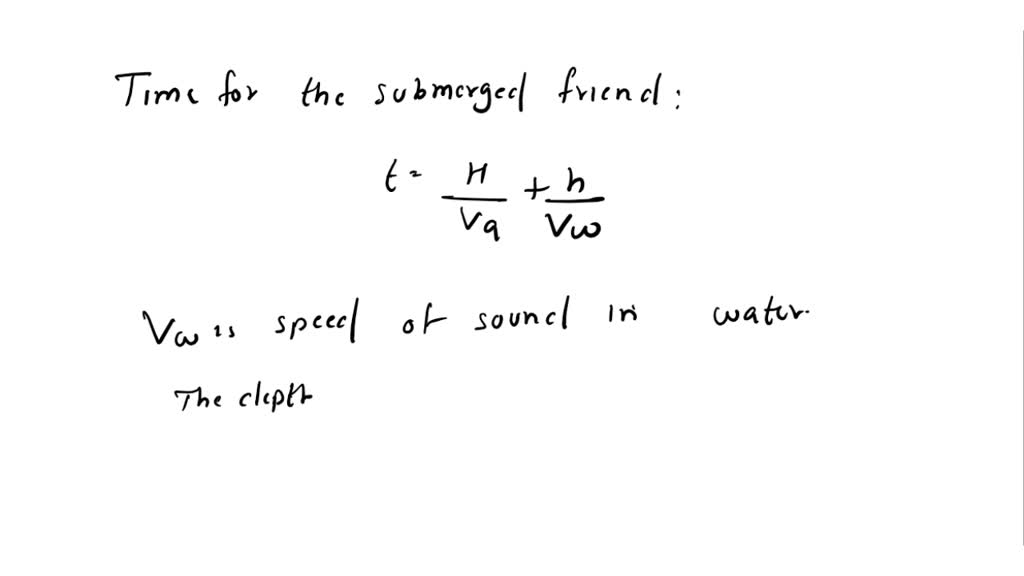 Time for the submerged friend:
t = H/Va + h/Vw
Vw is speed of sound in water.
The depth